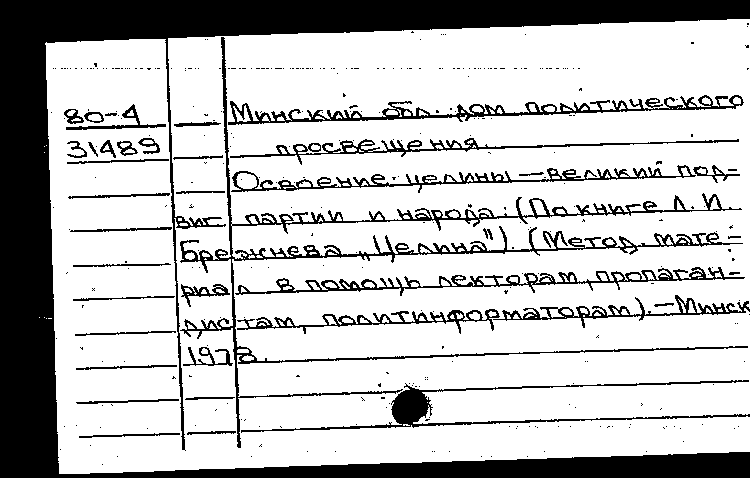 80-4 Минский обл. дом политического
31489 просвещения.
Освоение целины — великий под-
виг партии и народа: (По книге Л. И.
Брежнева „Целина"). (Метод. мате-
риал в помощь лекторам, пропаган-
дистам, политинформаторам). — Минск
1978.